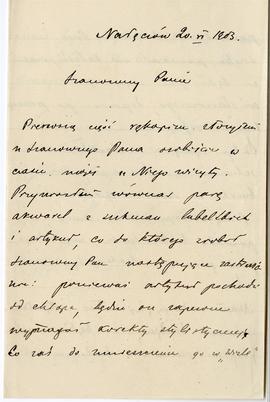 Nałęczów 20. VI 1903.
Szanowny Panie
Pierwszą część rękopisu złożyłem
u Szanownego Pana osobiście w
czasie mojej u Niego wizyty.
Przyniosłem również parę
akwarel z sukman lubelskich
i artykuł, co do którego zrobił
Szanowny Pan następujące zastrzeże
nie: ponieważ artykuł pochodzi
od chłopa, będzie on zapewne
wymagał korekty stylistycznej.
Co zaś do umieszczenia go w „Wiśle"